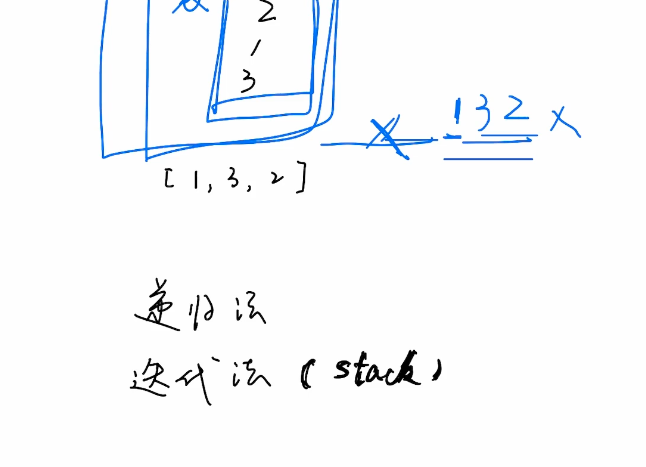 2
1
3
132 X
[1, 3, 2]
递归法
迭代法 (stack)